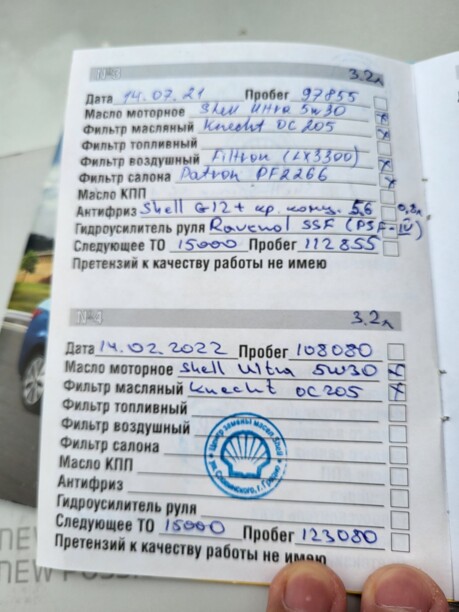 №3 3.2л
Дата 14.07.21 Пробег 97855
Масло моторное Shell Ultra 5w30
Фильтр масляный Knecht OC 205
Фильтр топливный
Фильтр воздушный Filtron (LX3300)
Фильтр салона Patron PF2266
Масло КПП
Антифриз Shell G12+ кр. конц. 5,6 0,2л
Гидроусилитель руля Ravenol SSF (PSF-IV)
Следующее ТО 15000 Пробег 112855
Претензий к качеству работы не имею
№4 3.2л
Дата 14.02.2022 Пробег 108080
Масло моторное Shell Ultra 5W30
Фильтр масляный Knecht OC205
Фильтр топливный
Фильтр воздушный
Фильтр салона
Масло КПП
Антифриз
Гидроусилитель руля
Следующее ТО 15000 Пробег 123080
Претензий к качеству работы не имею
Центр замены масел Shell
NEW
NEW